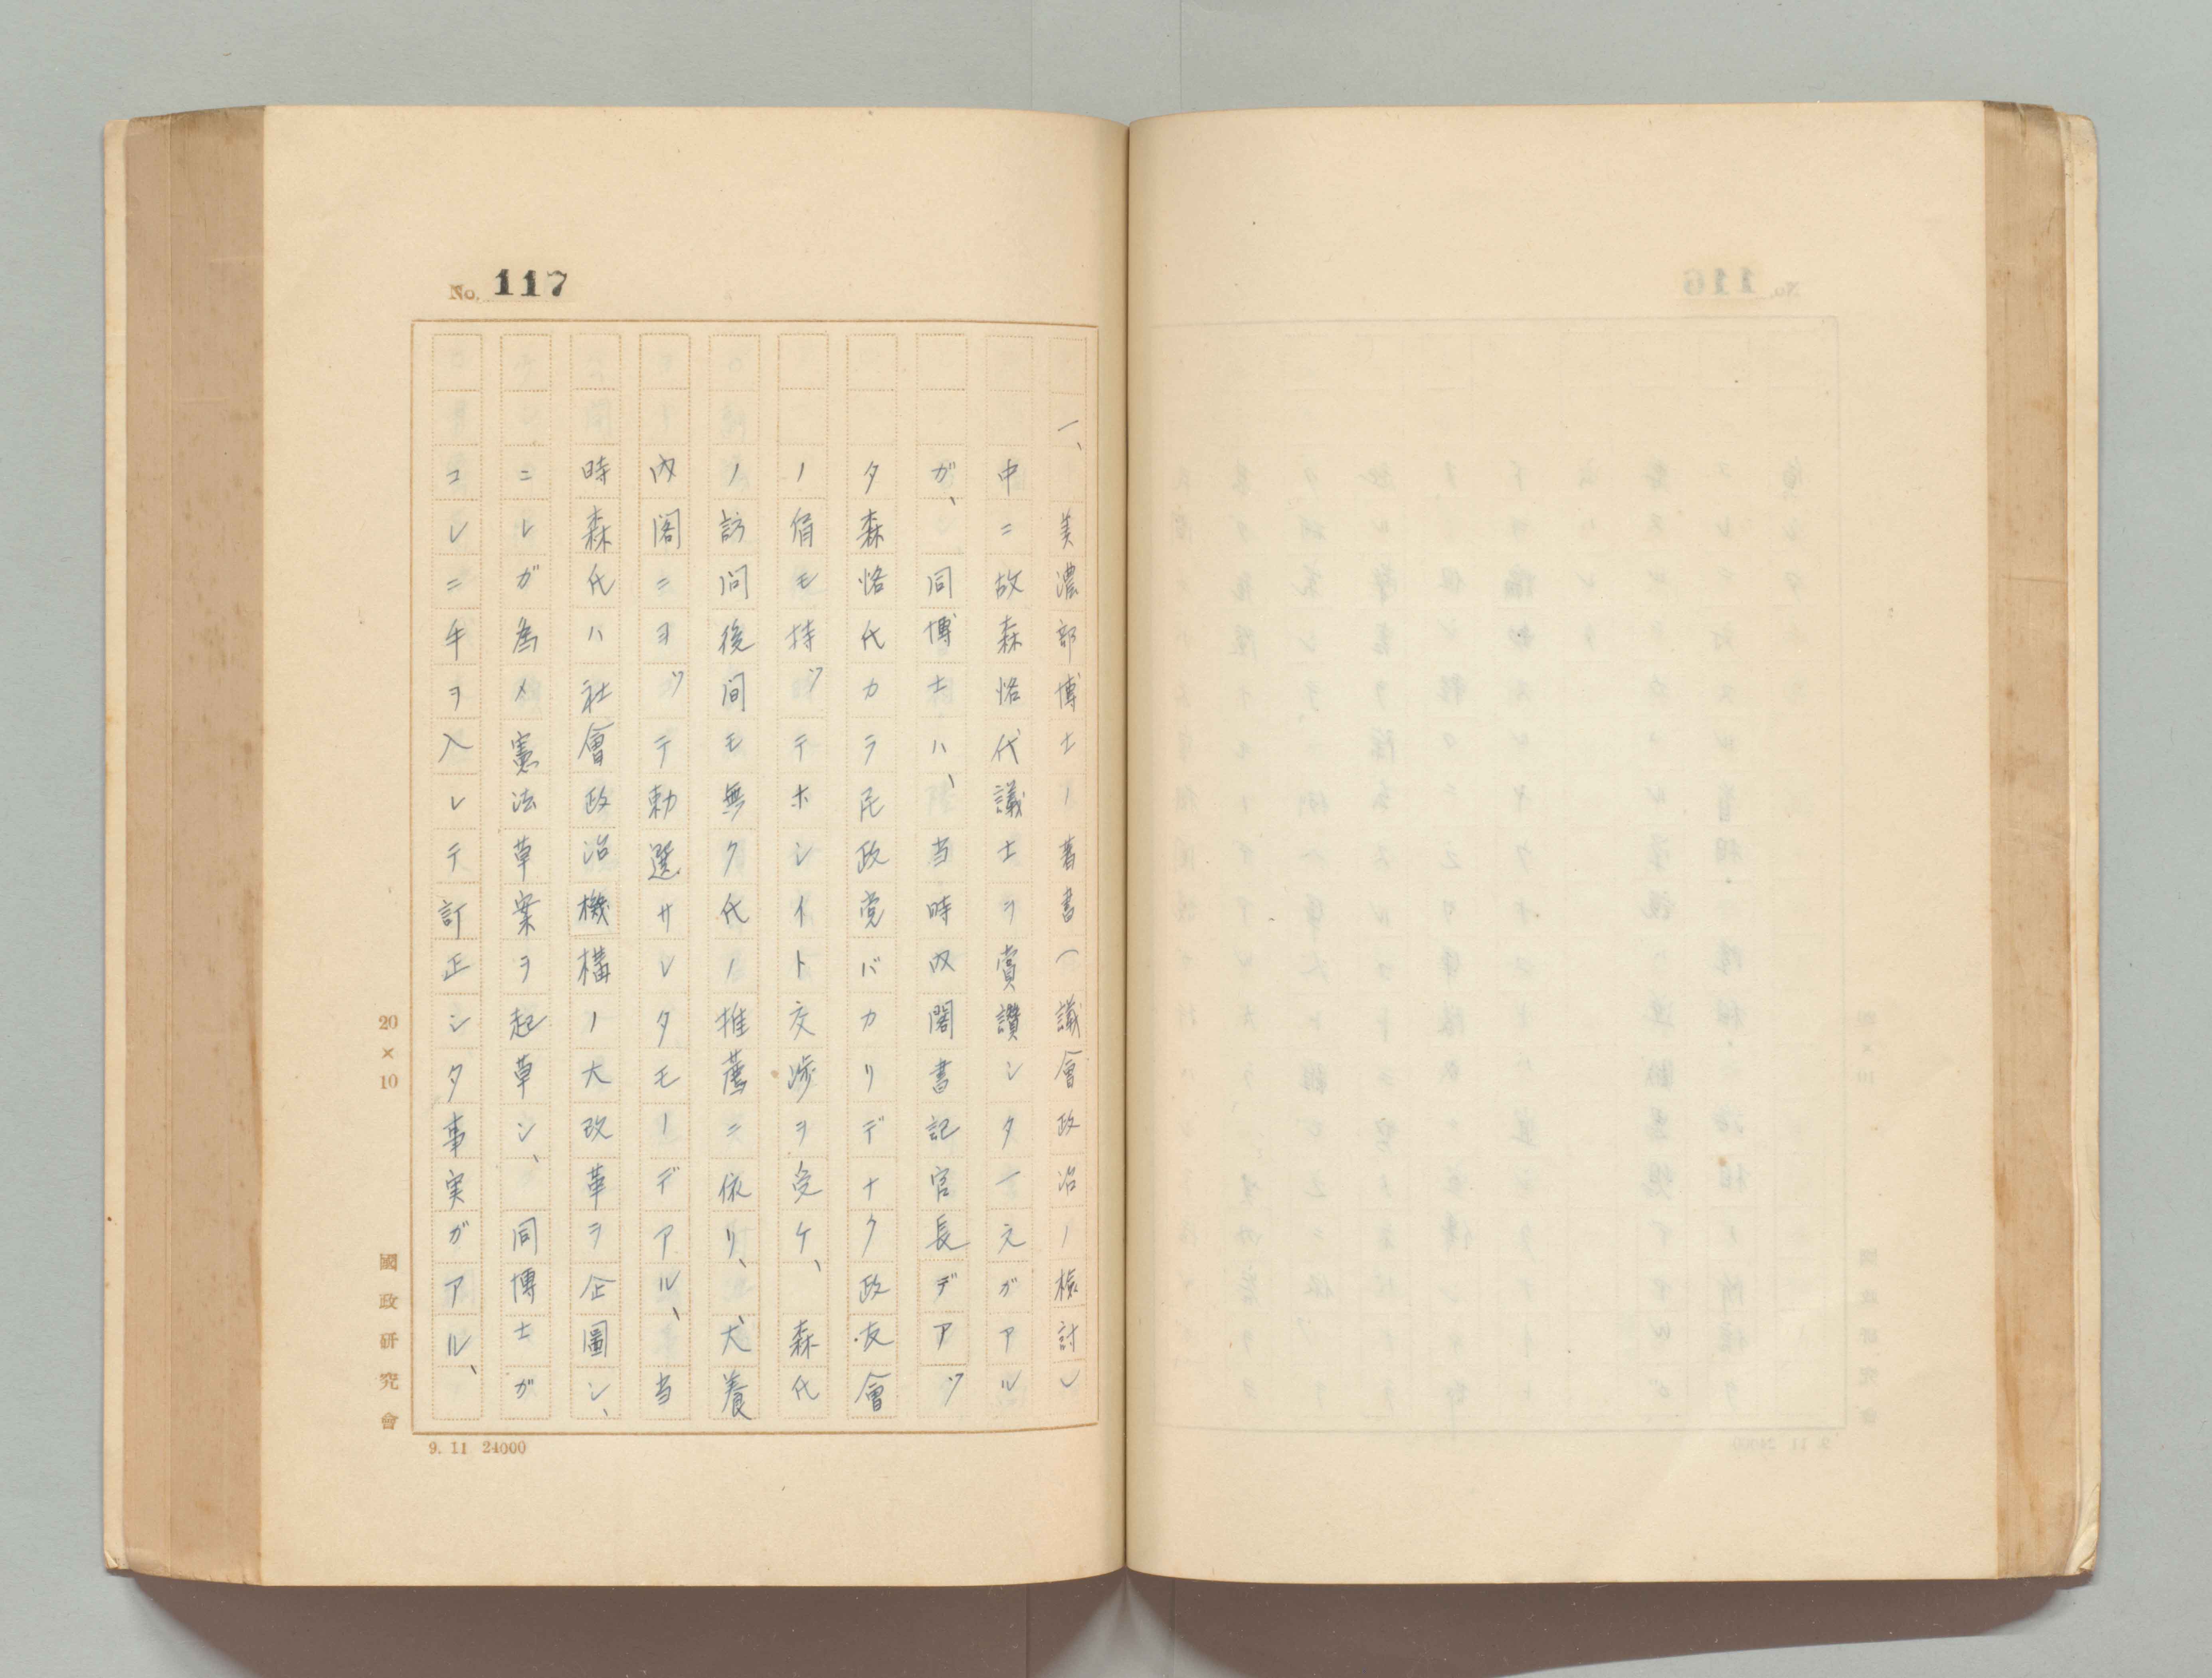 No. 117
一、美濃部博士ノ著書(議會政治ノ檢討)
中ニ故森恪代議士ヲ賞讃シタ一文ガアル
ガ、同博士ハ、当時内閣書記官長デアツ
タ森恪代カラ民政党バカリデナク政友會
ノ肩モ持ツテホシイト交渉ヲ受ケ、森代
ノ訪問後間モ無ク代ノ推薦ニ依リ、犬養
内閣ニヨツテ勅選サレタモノデアル、当
時森代ハ社會政治機構ノ大改革ヲ企圖シ、
コレガ為メ憲法草案ヲ起草シ、同博士ガ
コレニ手ヲ入レテ訂正シタ事実ガアル、
20×10
國政研究會
9. 11 24000